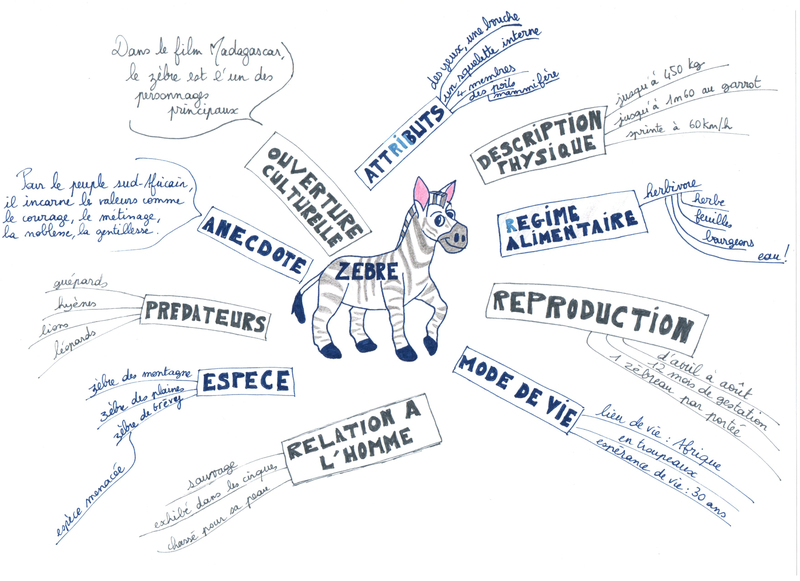 ZEBRE
ATTRIBUTS
des yeux, une bouche
un squelette interne
4 membres
des poils
mammifère
DESCRIPTION
PHYSIQUE
jusqu'à 450 kg
jusqu'à 1m60 au garrot
sprinte à 60km/h
REGIME
ALIMENTAIRE
herbivore
herbe
feuilles
bourgeons
eau!
REPRODUCTION
d'avril à août
12 mois de gestation
1 zébreau par portée
MODE DE VIE
lieu de vie : Afrique
en troupeaux
espérance de vie : 30 ans
RELATION A
L'HOMME
sauvage
exhibé dans les cirques
chassé pour sa peau
ESPECE
zèbre des montagne
zèbre des plaines
zèbre de Grévy
espèce menacée
PREDATEURS
guépards
hyènes
lions
léopards
ANECDOTE
Pour le peuple sud-Africain,
il incarne le valeurs comme
le courage, le métissage,
la noblesse, la gentillesse.
OUVERTURE
CULTURELLE
Dans le film Madagascar,
le zèbre est l'un des
personnages
principaux